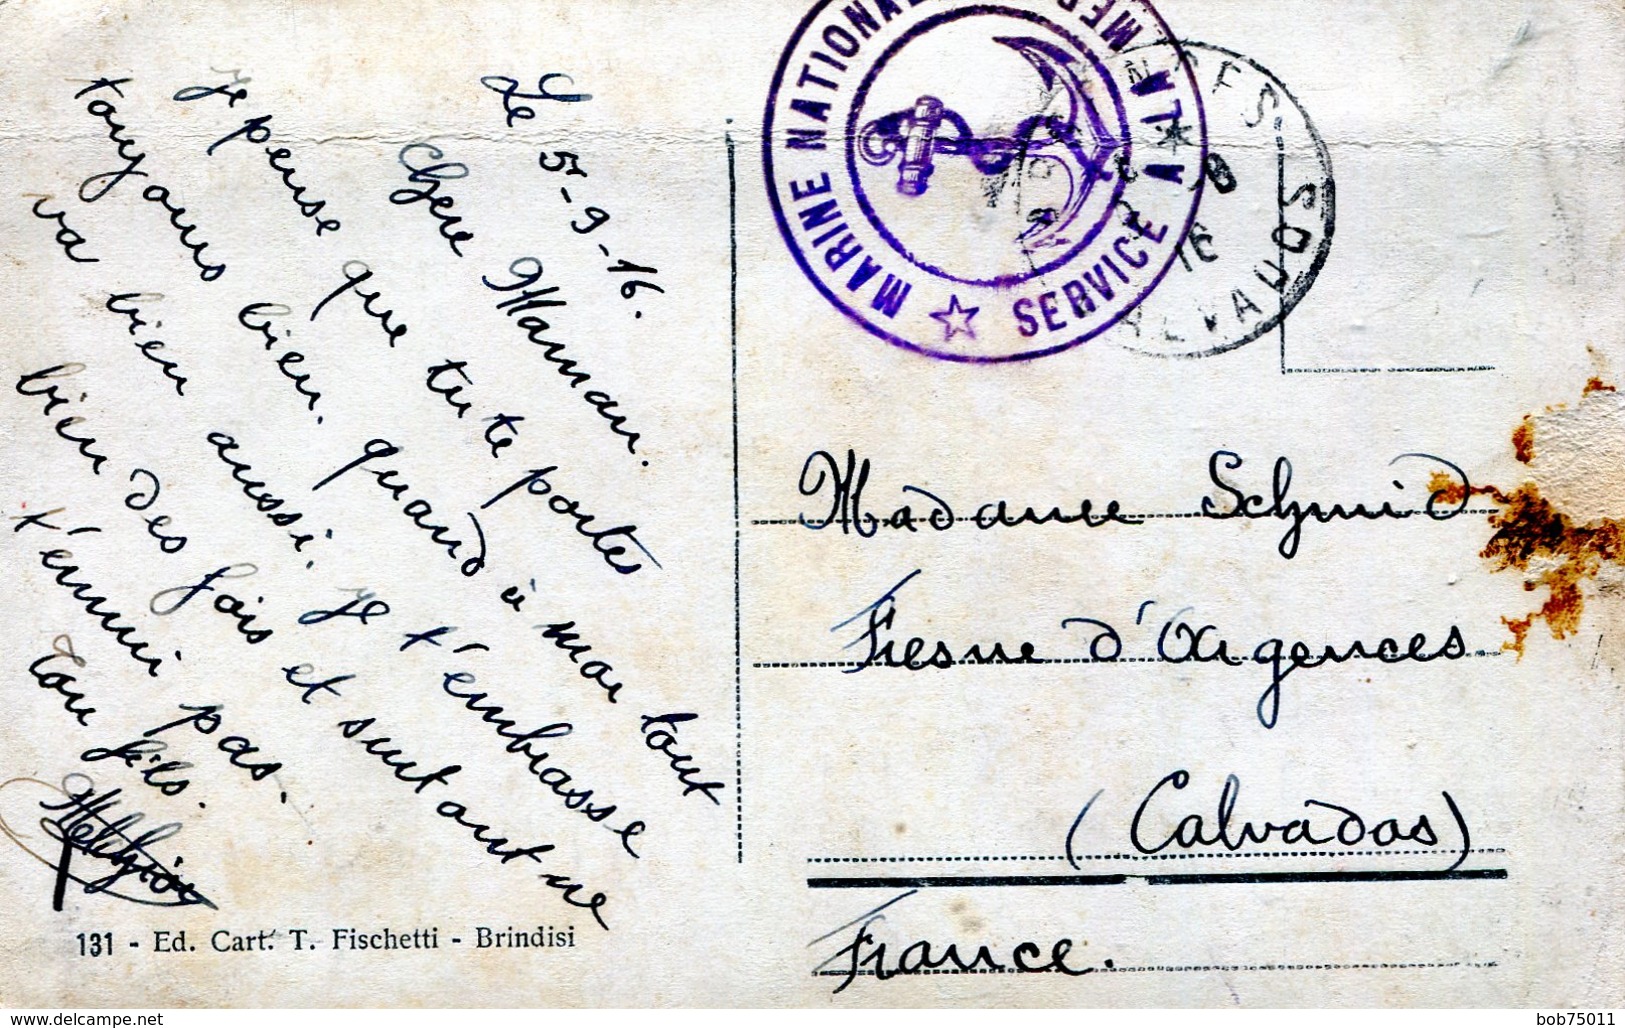 Le 5-9-16.
Chère Maman.
Je pense que tu te portes
toujours bien. quand à moi tout
va bien aussi. Je t'embrasse
bien des fois et surtout ne
t'ennui pas.
Ton fils.
Melchior
131 - Ed. Cart. T. Fischetti - Brindisi
MARINE NATIONALE
SERVICE A LA MER
CALVADOS
16
Madame Schmid
Fresne d'Argences
(Calvados)
France.
delcampe.net
bob75011